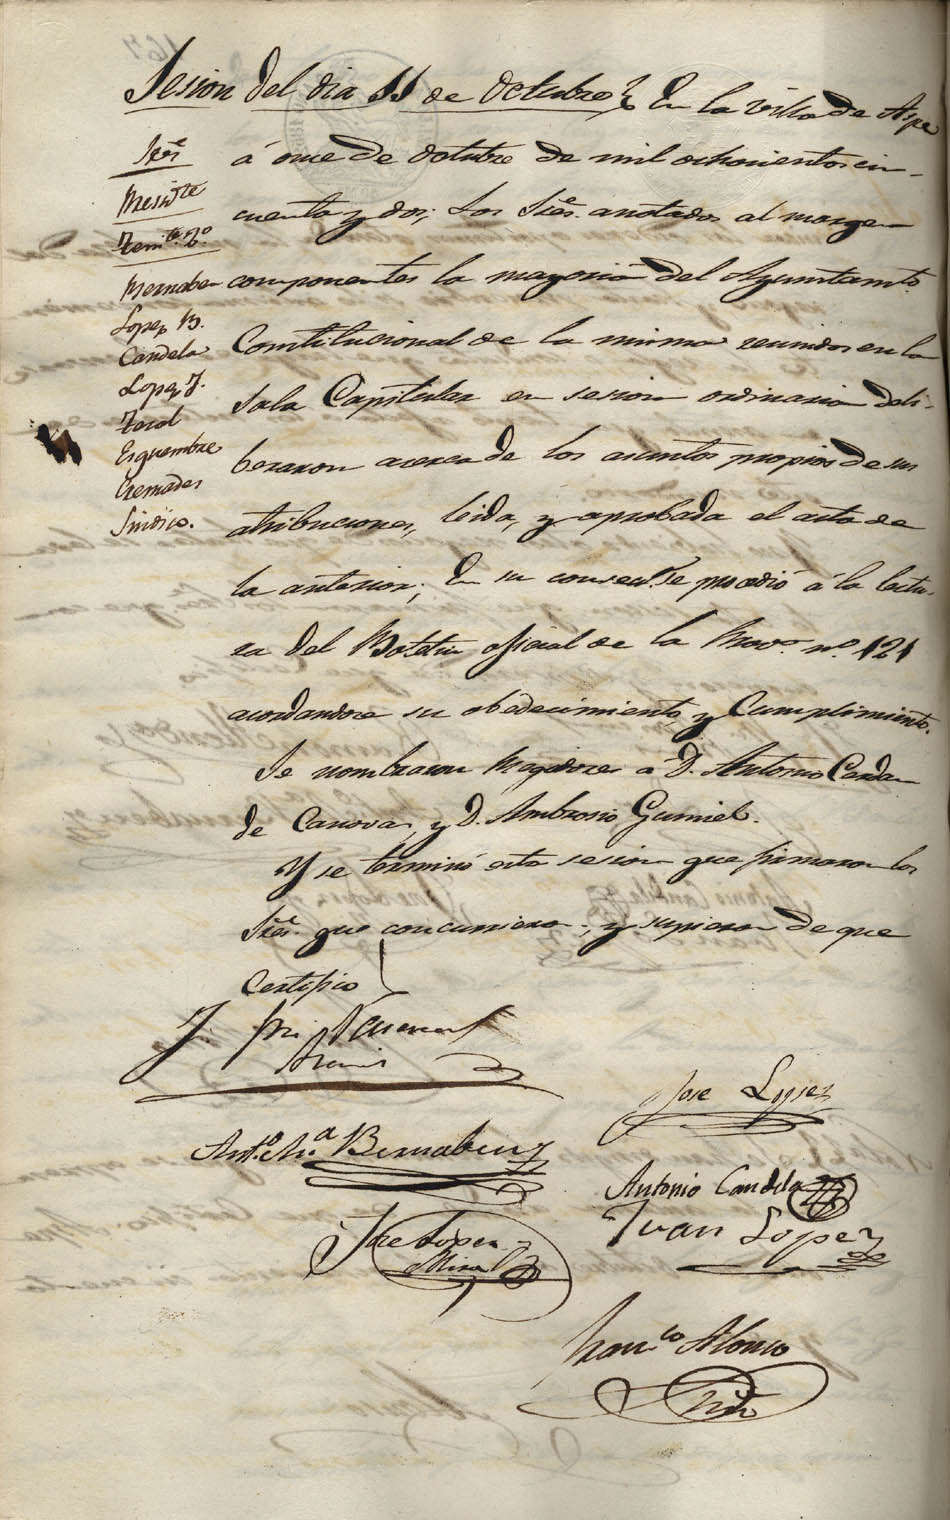 Sesion del dia 11 de Octubre En la villa de Aspe
á once de Octubre de mil ochocientos cin-
cuenta y dos; Los Sres. anotados al margen
componentes la mayoria del Ayuntamto.
Constitucional de la misma reunidos en la
Sala Capitular en sesion ordinaria deli-
beraron acerca de los asuntos propios de sus
atribuciones, leida, y aprobada el acta de
la anterior; En su consecue. se procedió á la lectu-
ra del Boletin oficial de la Prova. nº. 121
acordandose su obedecimiento y Cumplimiento.
Se nombraron a D. Antonio
de Canovas, y D. Ambrosio Gumiel.
Y se terminó esta sesion que firmaron los
Sres. que concurrieron y supieron de que
Certifico
Sres.
Preside
Tente. 2º.
Bernabeu
Lopez B.
Candela
Lopez J.
Terol
Esquembre
Cremades
Sindico.
Jose Lopez
Anto. Ma. Bernabeu
Antonio Candela
Juan Lopez
Jose Lopez
Mira
Franco. Alonso